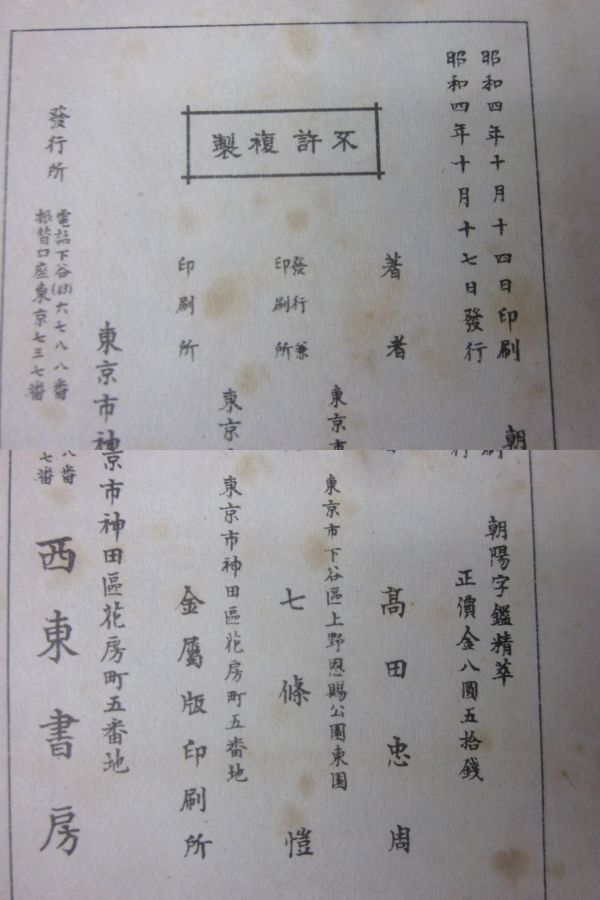 昭和四年十月十四日印刷
昭和四年十月十七日發行
朝陽字鑑精萃
正價金八圓五拾錢
不許複製
著者
高田忠周
東京市下谷區上野恩賜公園東園
發行兼
印刷所
七條愷
東京市神田區花房町五番地
印刷所
金屬版印刷所
東京市神田區花房町五番地
發行所
電話下谷(83)六七八八番
振替口座東京七三七番
西東書房